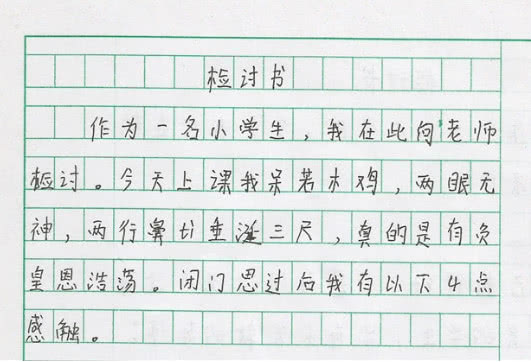 检讨书
作为一名小学生，我在此向老师
检讨。今天上课我呆若木鸡，两眼无
神，两行鼻ti垂涎三尺，真的是有负
皇恩浩荡。闭门思过后我有以下4点
感触。